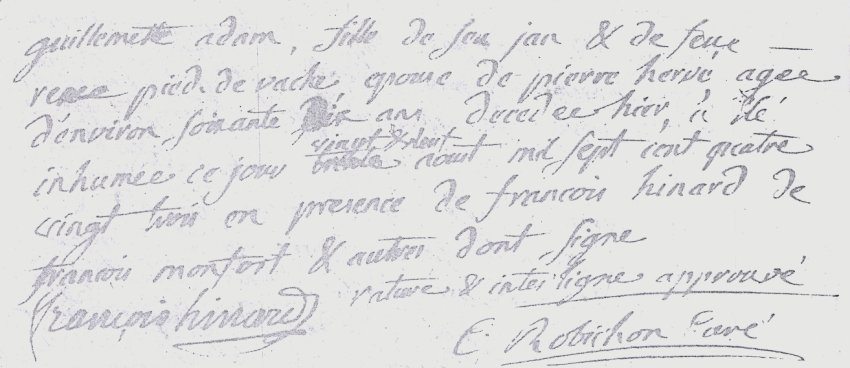 guillemette adam, fille de feu jan & de feue
renee pied de vache, epouse de pierre hervé, agée
d'environ soixante dix ans decedee hier, a été
vingt & deux
inhumee ce jour trente aout mil sept cent quatre
vingt trois en presence de francois hinard de
francois monfort & autres dont signe
rature & interligne approuvé
françois hinard
E. Robichon Curé